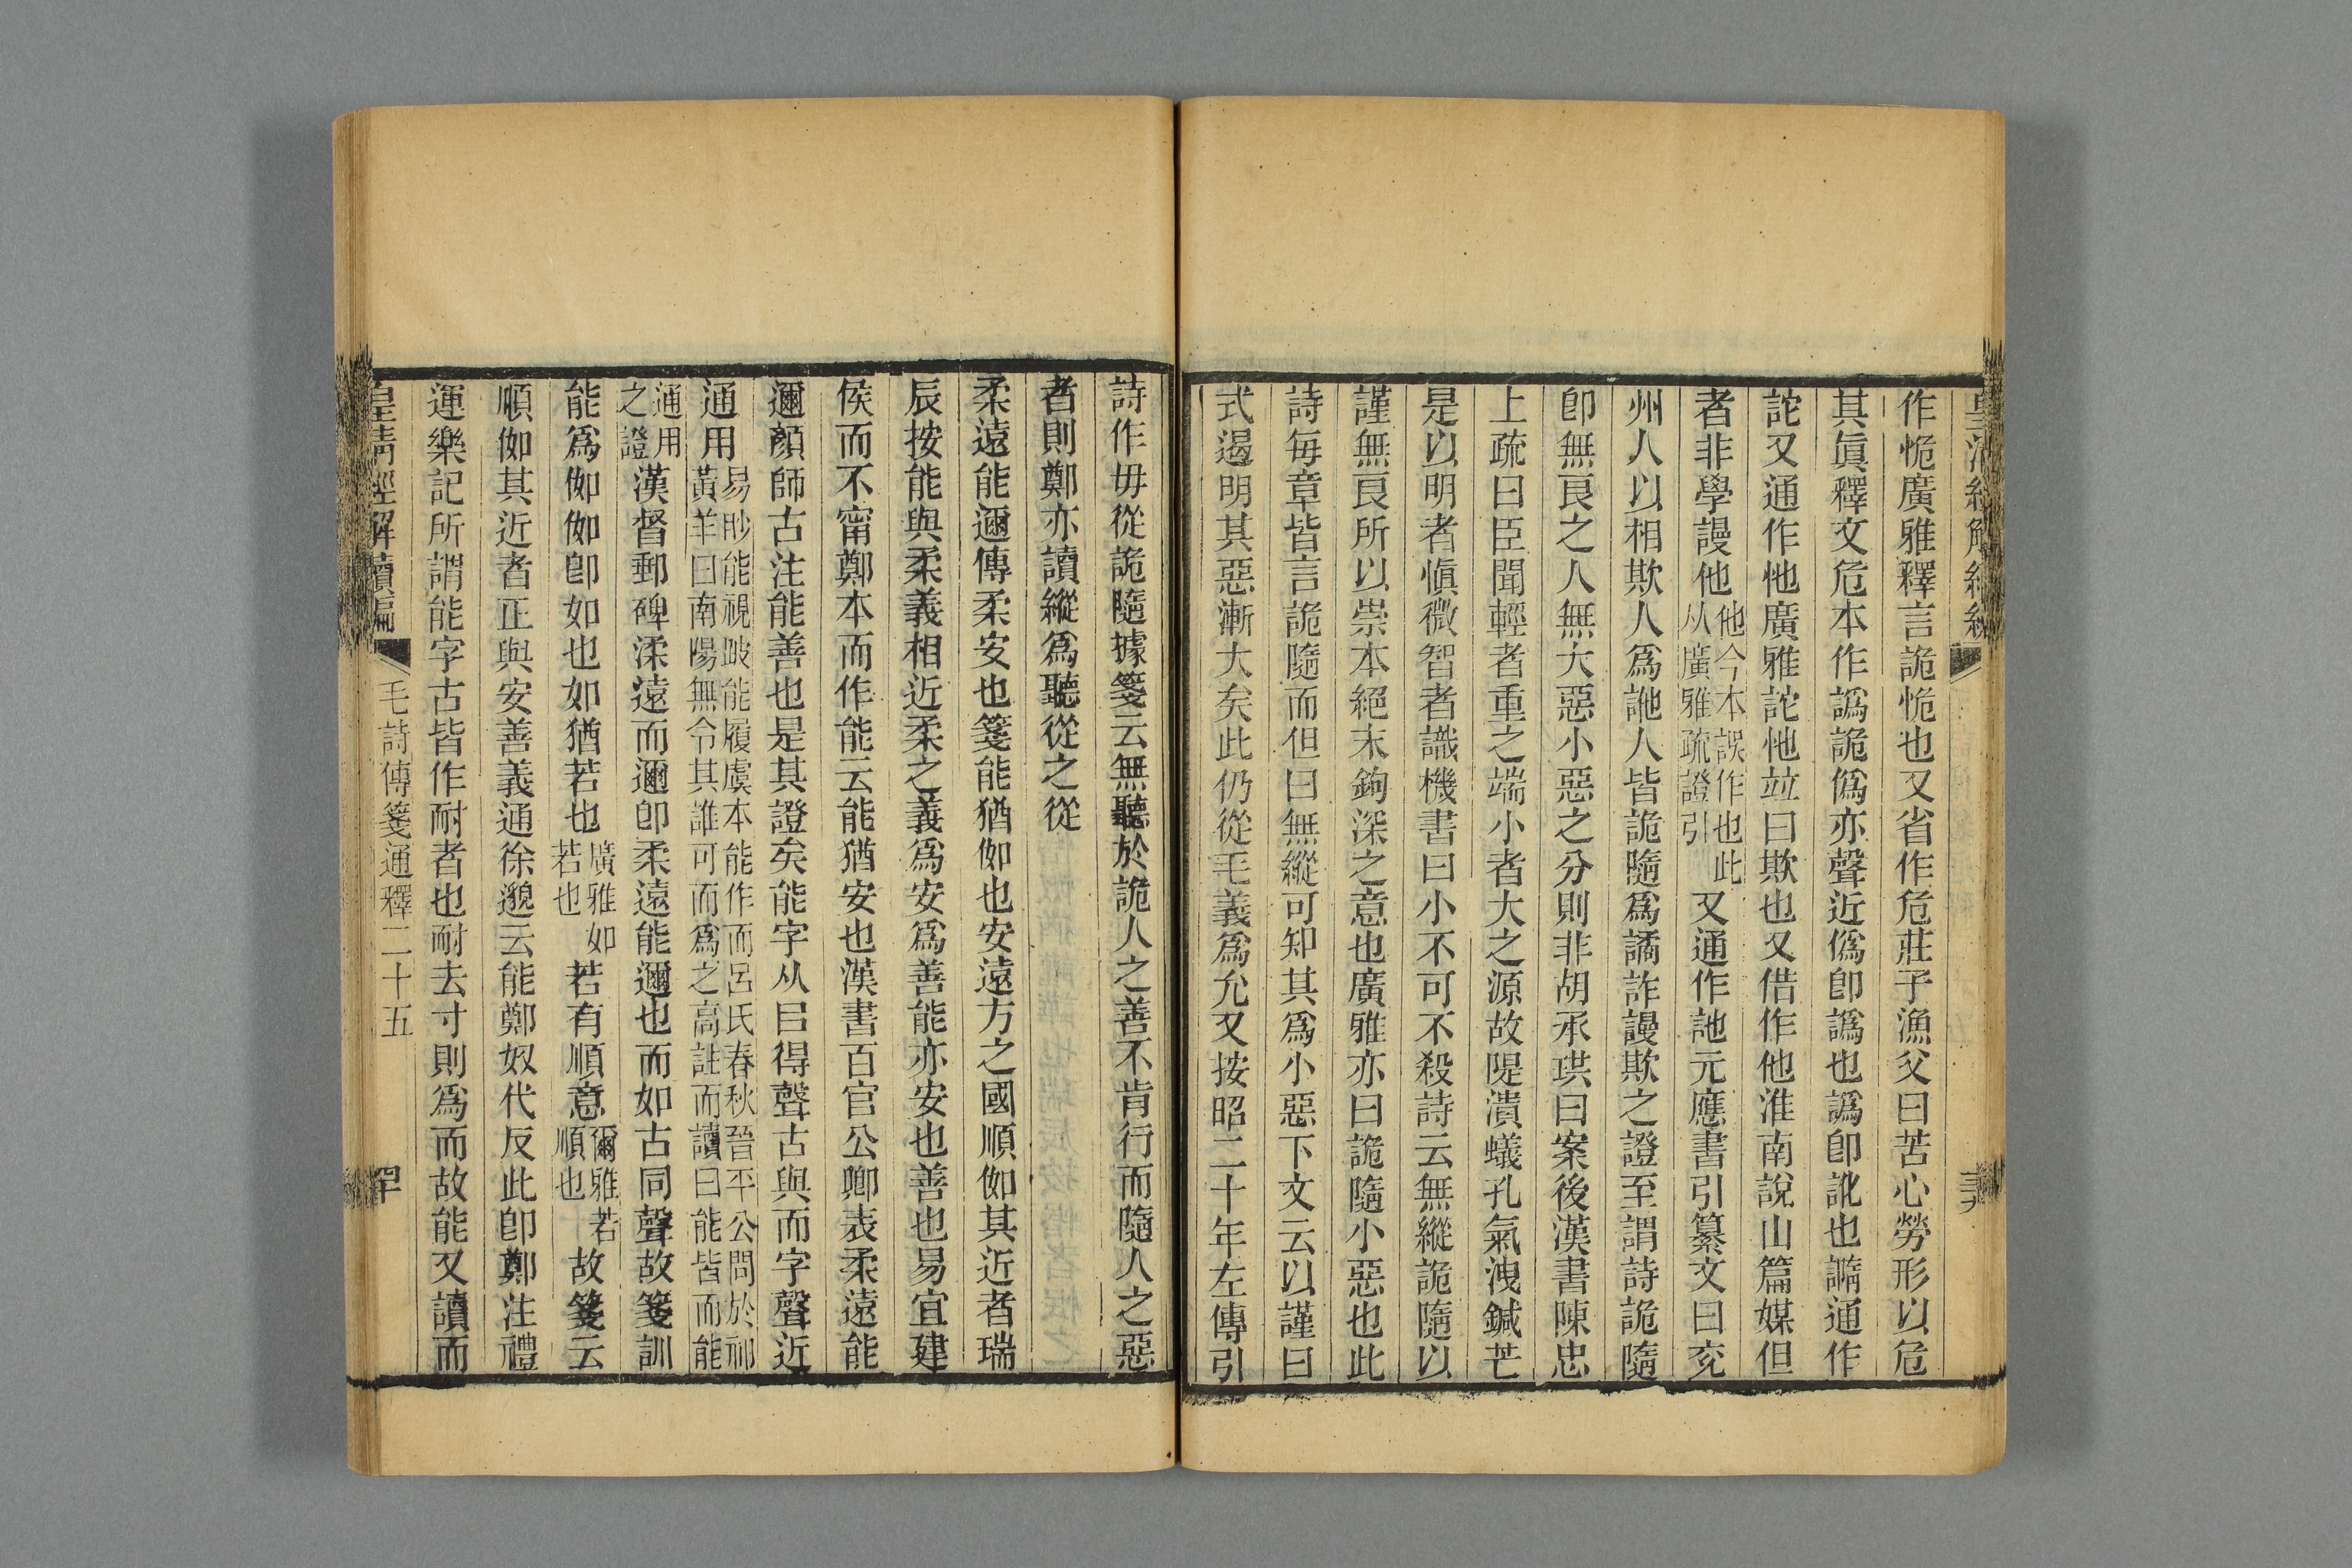 作恑廣雅釋言詭恑也又省作危莊子漁父曰苦心勞形以危
其眞釋文危本作譌詭僞亦聲近僞卽譌也譌卽訛也譌通作
詑又通作忚廣雅詑忚竝曰欺也又借作他淮南說山篇媒但
者非學謾他他今本誤作也此从廣雅疏證引又通作訑元應書引纂文曰兖
州人以相欺人爲訑人皆詭隨爲譎詐謾欺之證至謂詩詭隨
卽無良之人無大惡小惡之分則非胡承珙曰案後漢書陳忠
上疏曰臣聞輕者重之端小者大之源故隄潰蟻孔氣洩鍼芒
是以明者愼微智者識機書曰小不可不殺詩云無縱詭隨以
謹無良所以崇本絕末鉤深之意也廣雅亦曰詭隨小惡也此
詩每章皆言詭隨而但曰無縱可知其爲小惡下文云以謹曰
式遏明其惡漸大矣此仍從毛義爲允又按昭二十年左傳引
詩作毋從詭隨據箋云無聽於詭人之善不肯行而隨人之惡
者則鄭亦讀縱爲聽從之從
柔遠能邇傳柔安也箋能猶伽也安遠方之國順伽其近者瑞
辰按能與柔義相近柔之義爲安爲善能亦安也善也易宜建
侯而不甯鄭本而作能云能猶安也漢書百官公卿表柔遠能
邇顏師古注能善也是其證矣能字从㠯得聲古與而字聲近
通用易眇能視跛能履虞本能作而呂氏春秋晉平公問於祁黃羊曰南陽無令其誰可而爲之高註而讀曰能皆而能
通用之證漢督郵碑渘遠而邇卽柔遠能邇也而如古同聲故箋訓
能爲伽伽卽如也如猶若也廣雅如若也若有順意爾雅若順也故箋云
順伽其近者正與安善義通徐邈云能鄭奴代反此卽鄭注禮
運樂記所謂能字古皆作耐者也耐去寸則爲而故能又讀而
皇清經解續編 毛詩傳箋通釋二十五